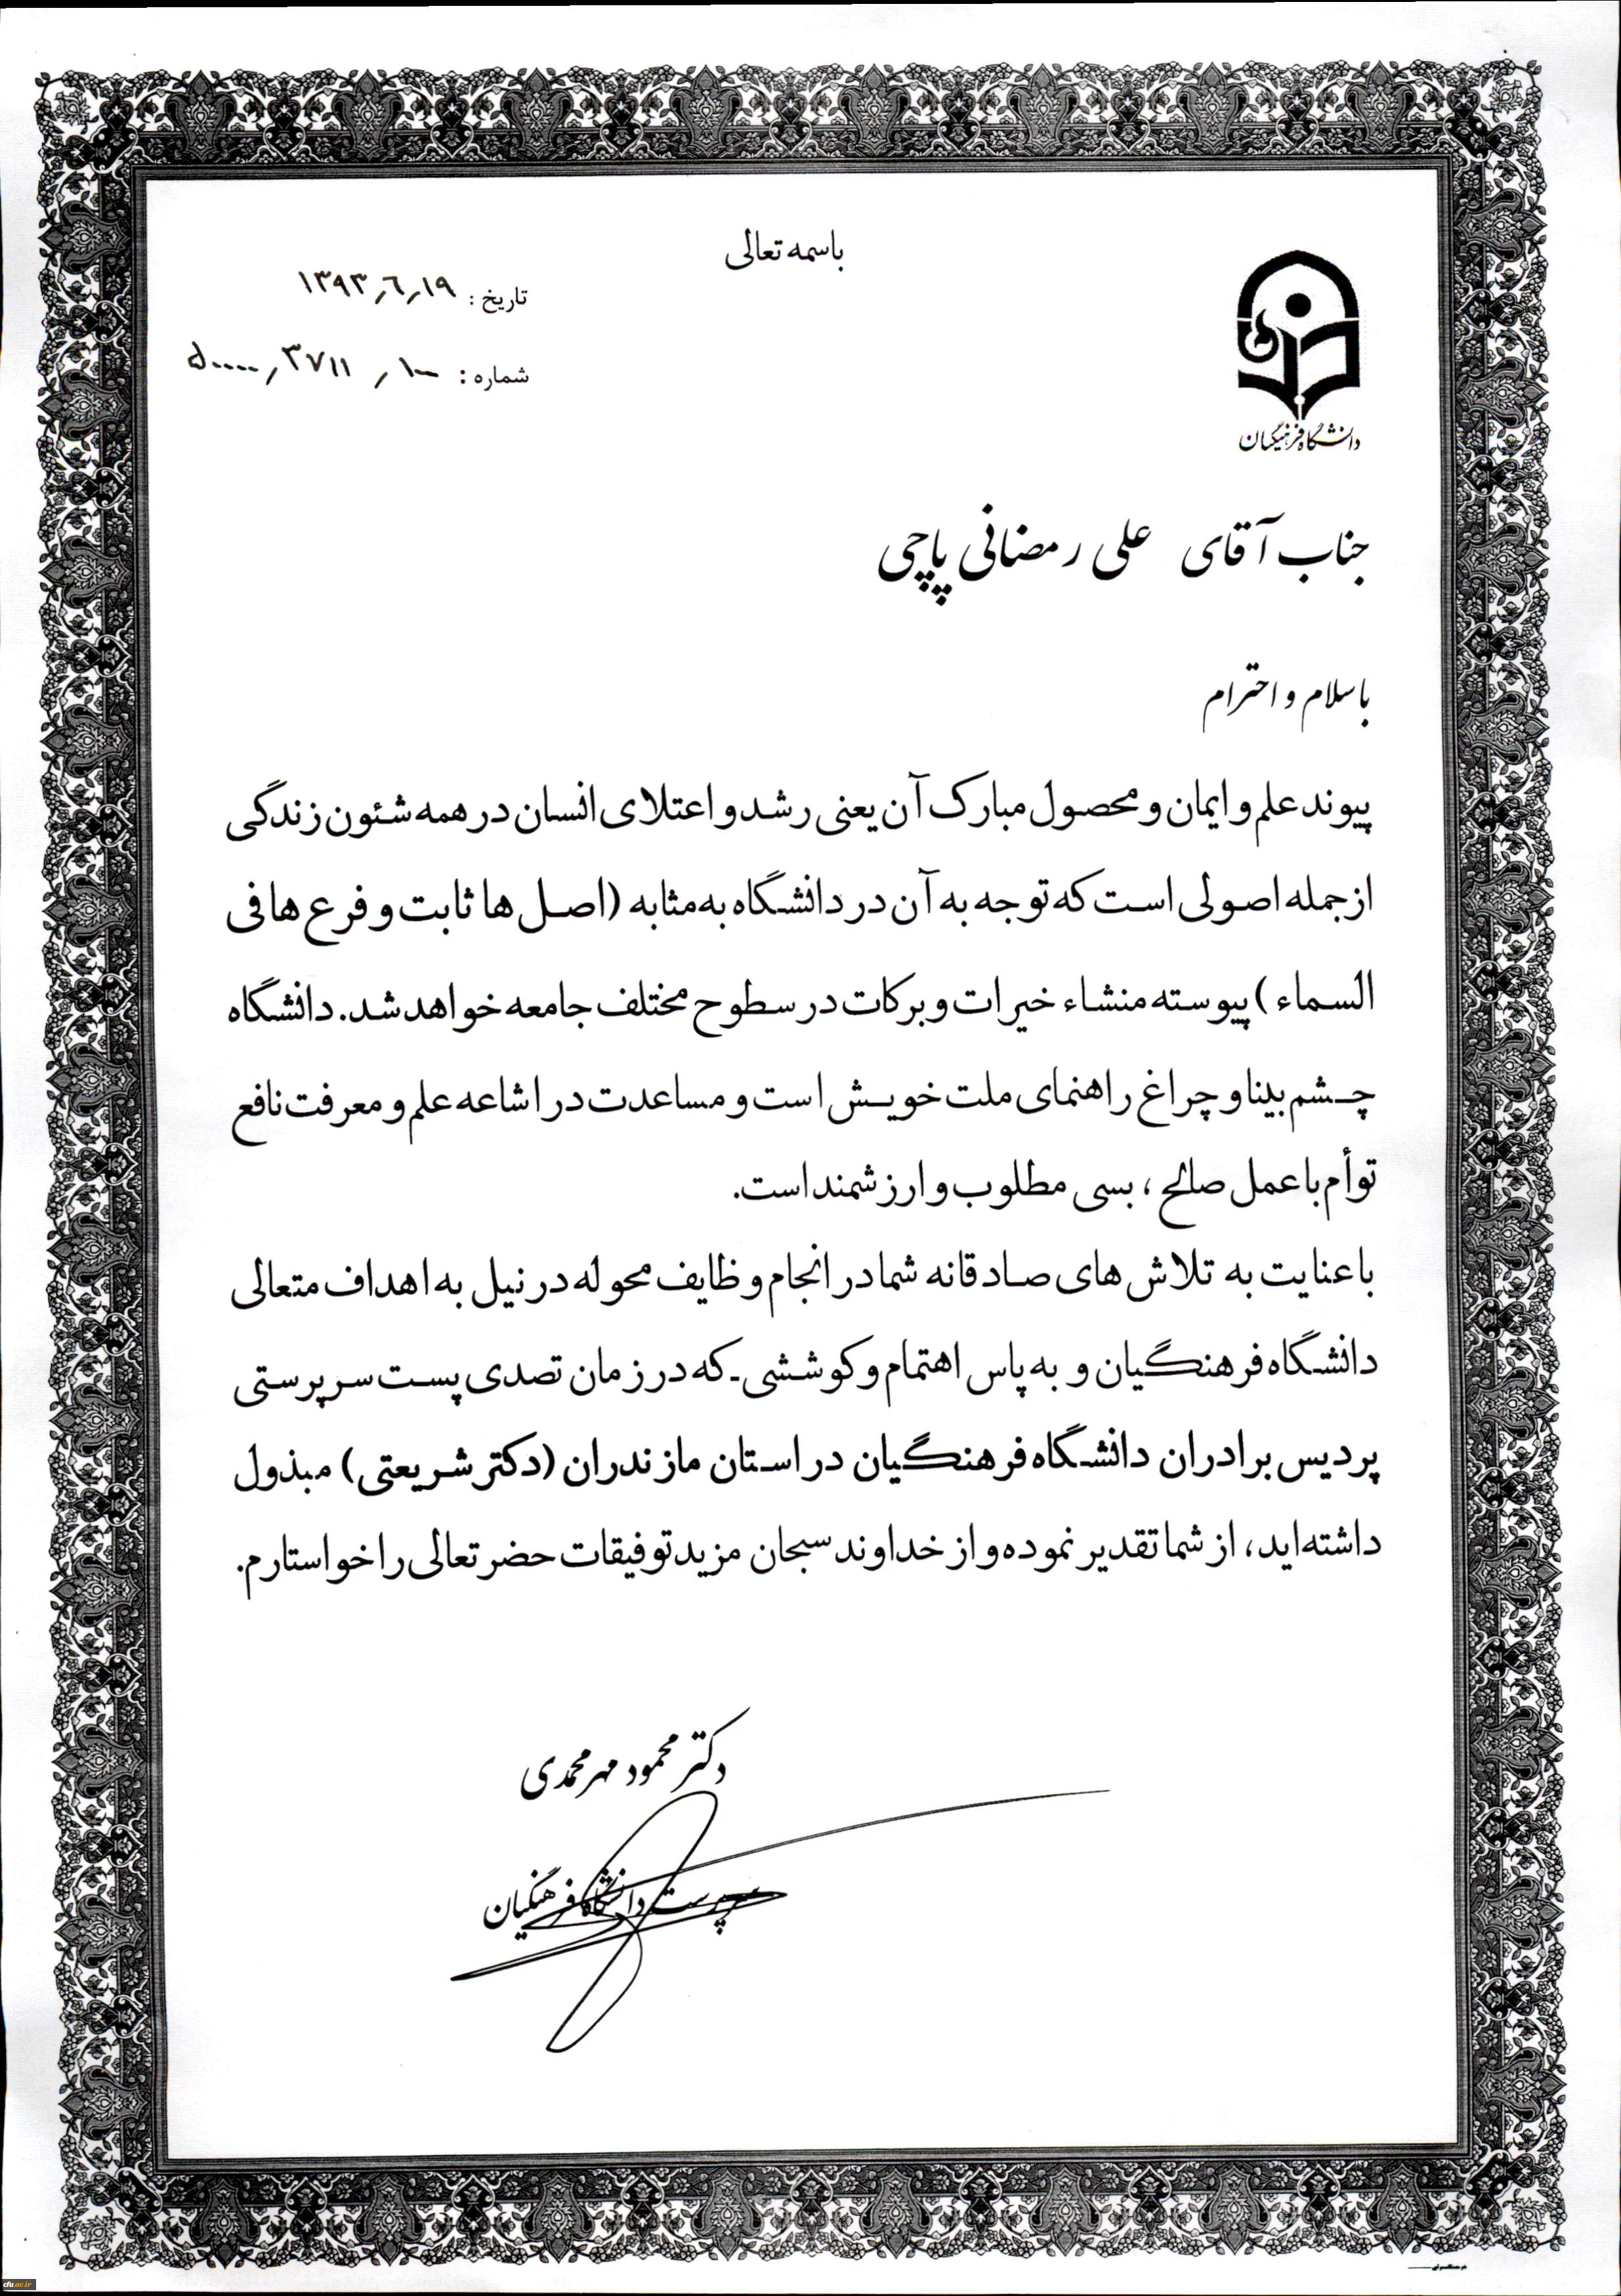 باسمه تعالی
تاریخ : ۱۳۹۳٫٦٫۱۹
شماره : ۱۰۰ ٫ ۳۷۱۱ ٫ ۵۰۰۰۰
دانشگاه فرهنگیان
جناب آقای علی رمضانی پاچی
با سلام و احترام
پیوند علم و ایمان و محصول مبارک آن یعنی رشد و اعتلای انسان در همه شئون زندگی
از جمله اصولی است که توجه به آن در دانشگاه به مثابه (اصل ها ثابت و فرع ها فی
السماء) پیوسته منشاء خیرات و برکات در سطوح مختلف جامعه خواهد شد. دانشگاه
چشم بینا و چراغ راهنمای ملت خویش است و مساعدت در اشاعه علم و معرفت نافع
توأم با عمل صالح ، بسی مطلوب و ارزشمند است.
با عنایت به تلاش های صادقانه شما در انجام وظایف محوله در نیل به اهداف متعالی
دانشگاه فرهنگیان و به پاس اهتمام و کوششی که در زمان تصدی پست سرپرستی
پردیس برادران دانشگاه فرهنگیان در استان مازندران (دکتر شریعتی) مبذول
داشته‌اید، از شما تقدیر نموده و از خداوند سبحان مزید توفیقات حضرتعالی را خواستارم.
دکتر محمود مهرمحمدی
سرپرست دانشگاه فرهنگیان
cfu.ac.ir